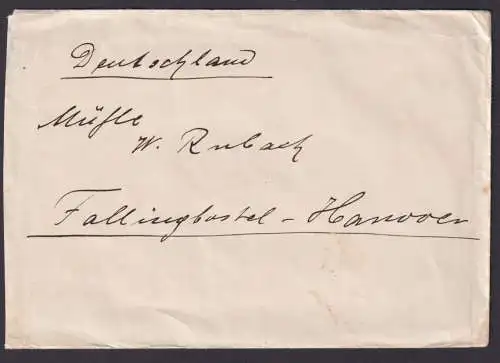 Deutschland
Mühle
W. Rubach
Fallingbostel - Hanover